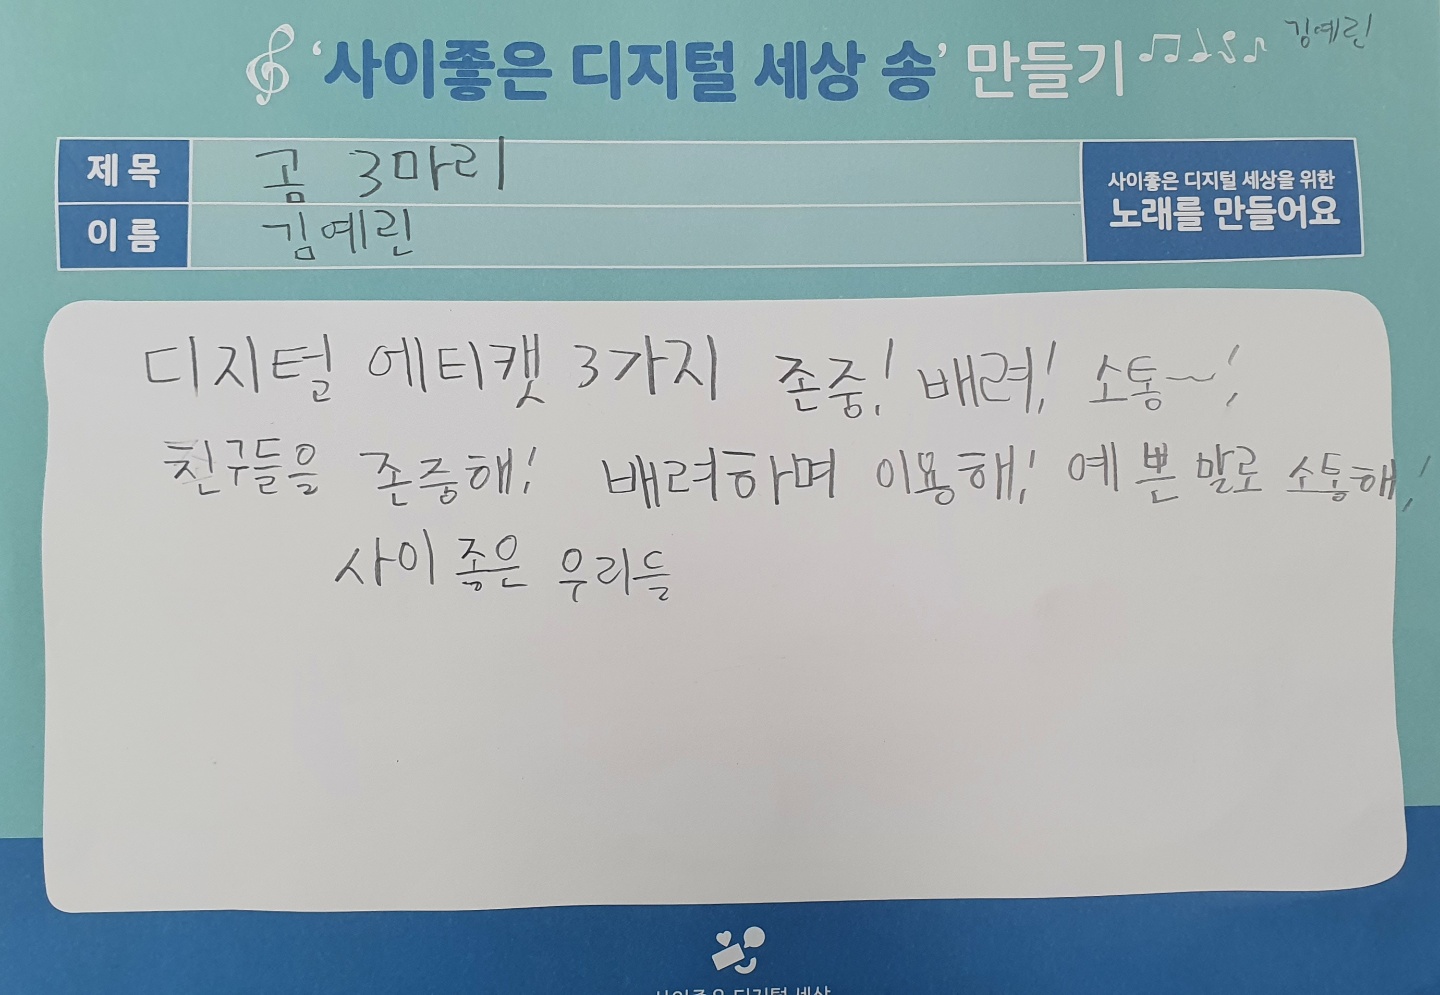 '사이좋은 디지털 세상 송' 만들기 김예린
제목 곰 3마리
이름 김예린
사이좋은 디지털 세상을 위한
노래를 만들어요
디지털 에티캣 3가지 존중! 배려! 소통~!
친구들을 존중해! 배려하며 이용해! 예쁜 말로 소통해!
사이 좋은 우리들
사이좋은 디지털 세상